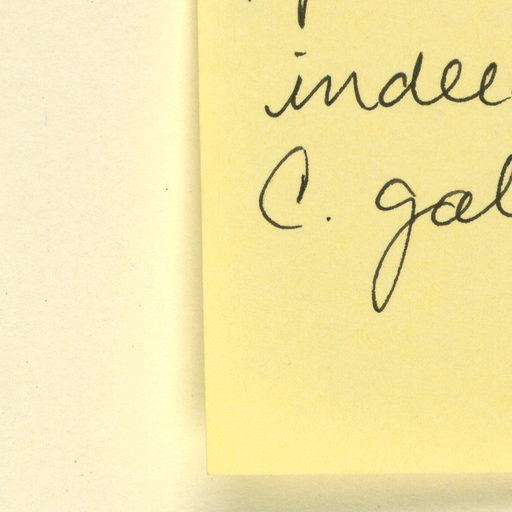 indee
C. gal